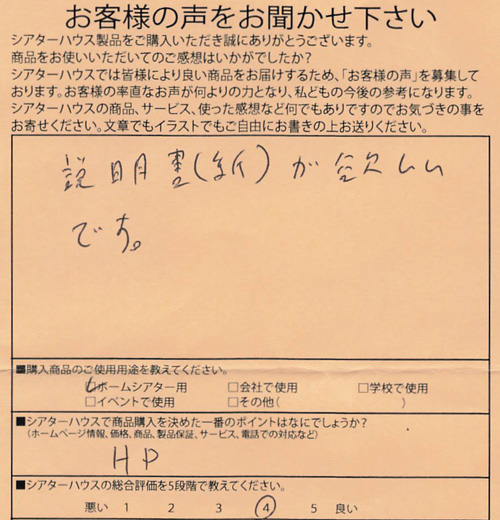 お客様の声をお聞かせ下さい
シアターハウス製品をご購入いただき誠にありがとうございます。
商品をお使いいただいてのご感想はいかがでしたか?
シアターハウスでは皆様により良い商品をお届けするため、「お客様の声」を募集して
おります。お客様の率直なお声が何よりの力となり、私どもの今後の参考になります。
シアターハウスの商品、サービス、使った感想など何でもありですのでお気づきの事を
お寄せください。文章でもイラストでもご自由にお書きの上お送りください。
説明書(紙)が欲しい
です。
■購入商品のご使用用途を教えてください。
☑ホームシアター用 □会社で使用 □学校で使用
□イベントで使用 □その他( )
■シアターハウスで商品購入を決めた一番のポイントはなにでしょうか?
(ホームページ情報、価格、商品、製品保証、サービス、電話での対応など)
HP
■シアターハウスの総合評価を5段階で教えてください。
悪い 1 2 3 4 5 良い